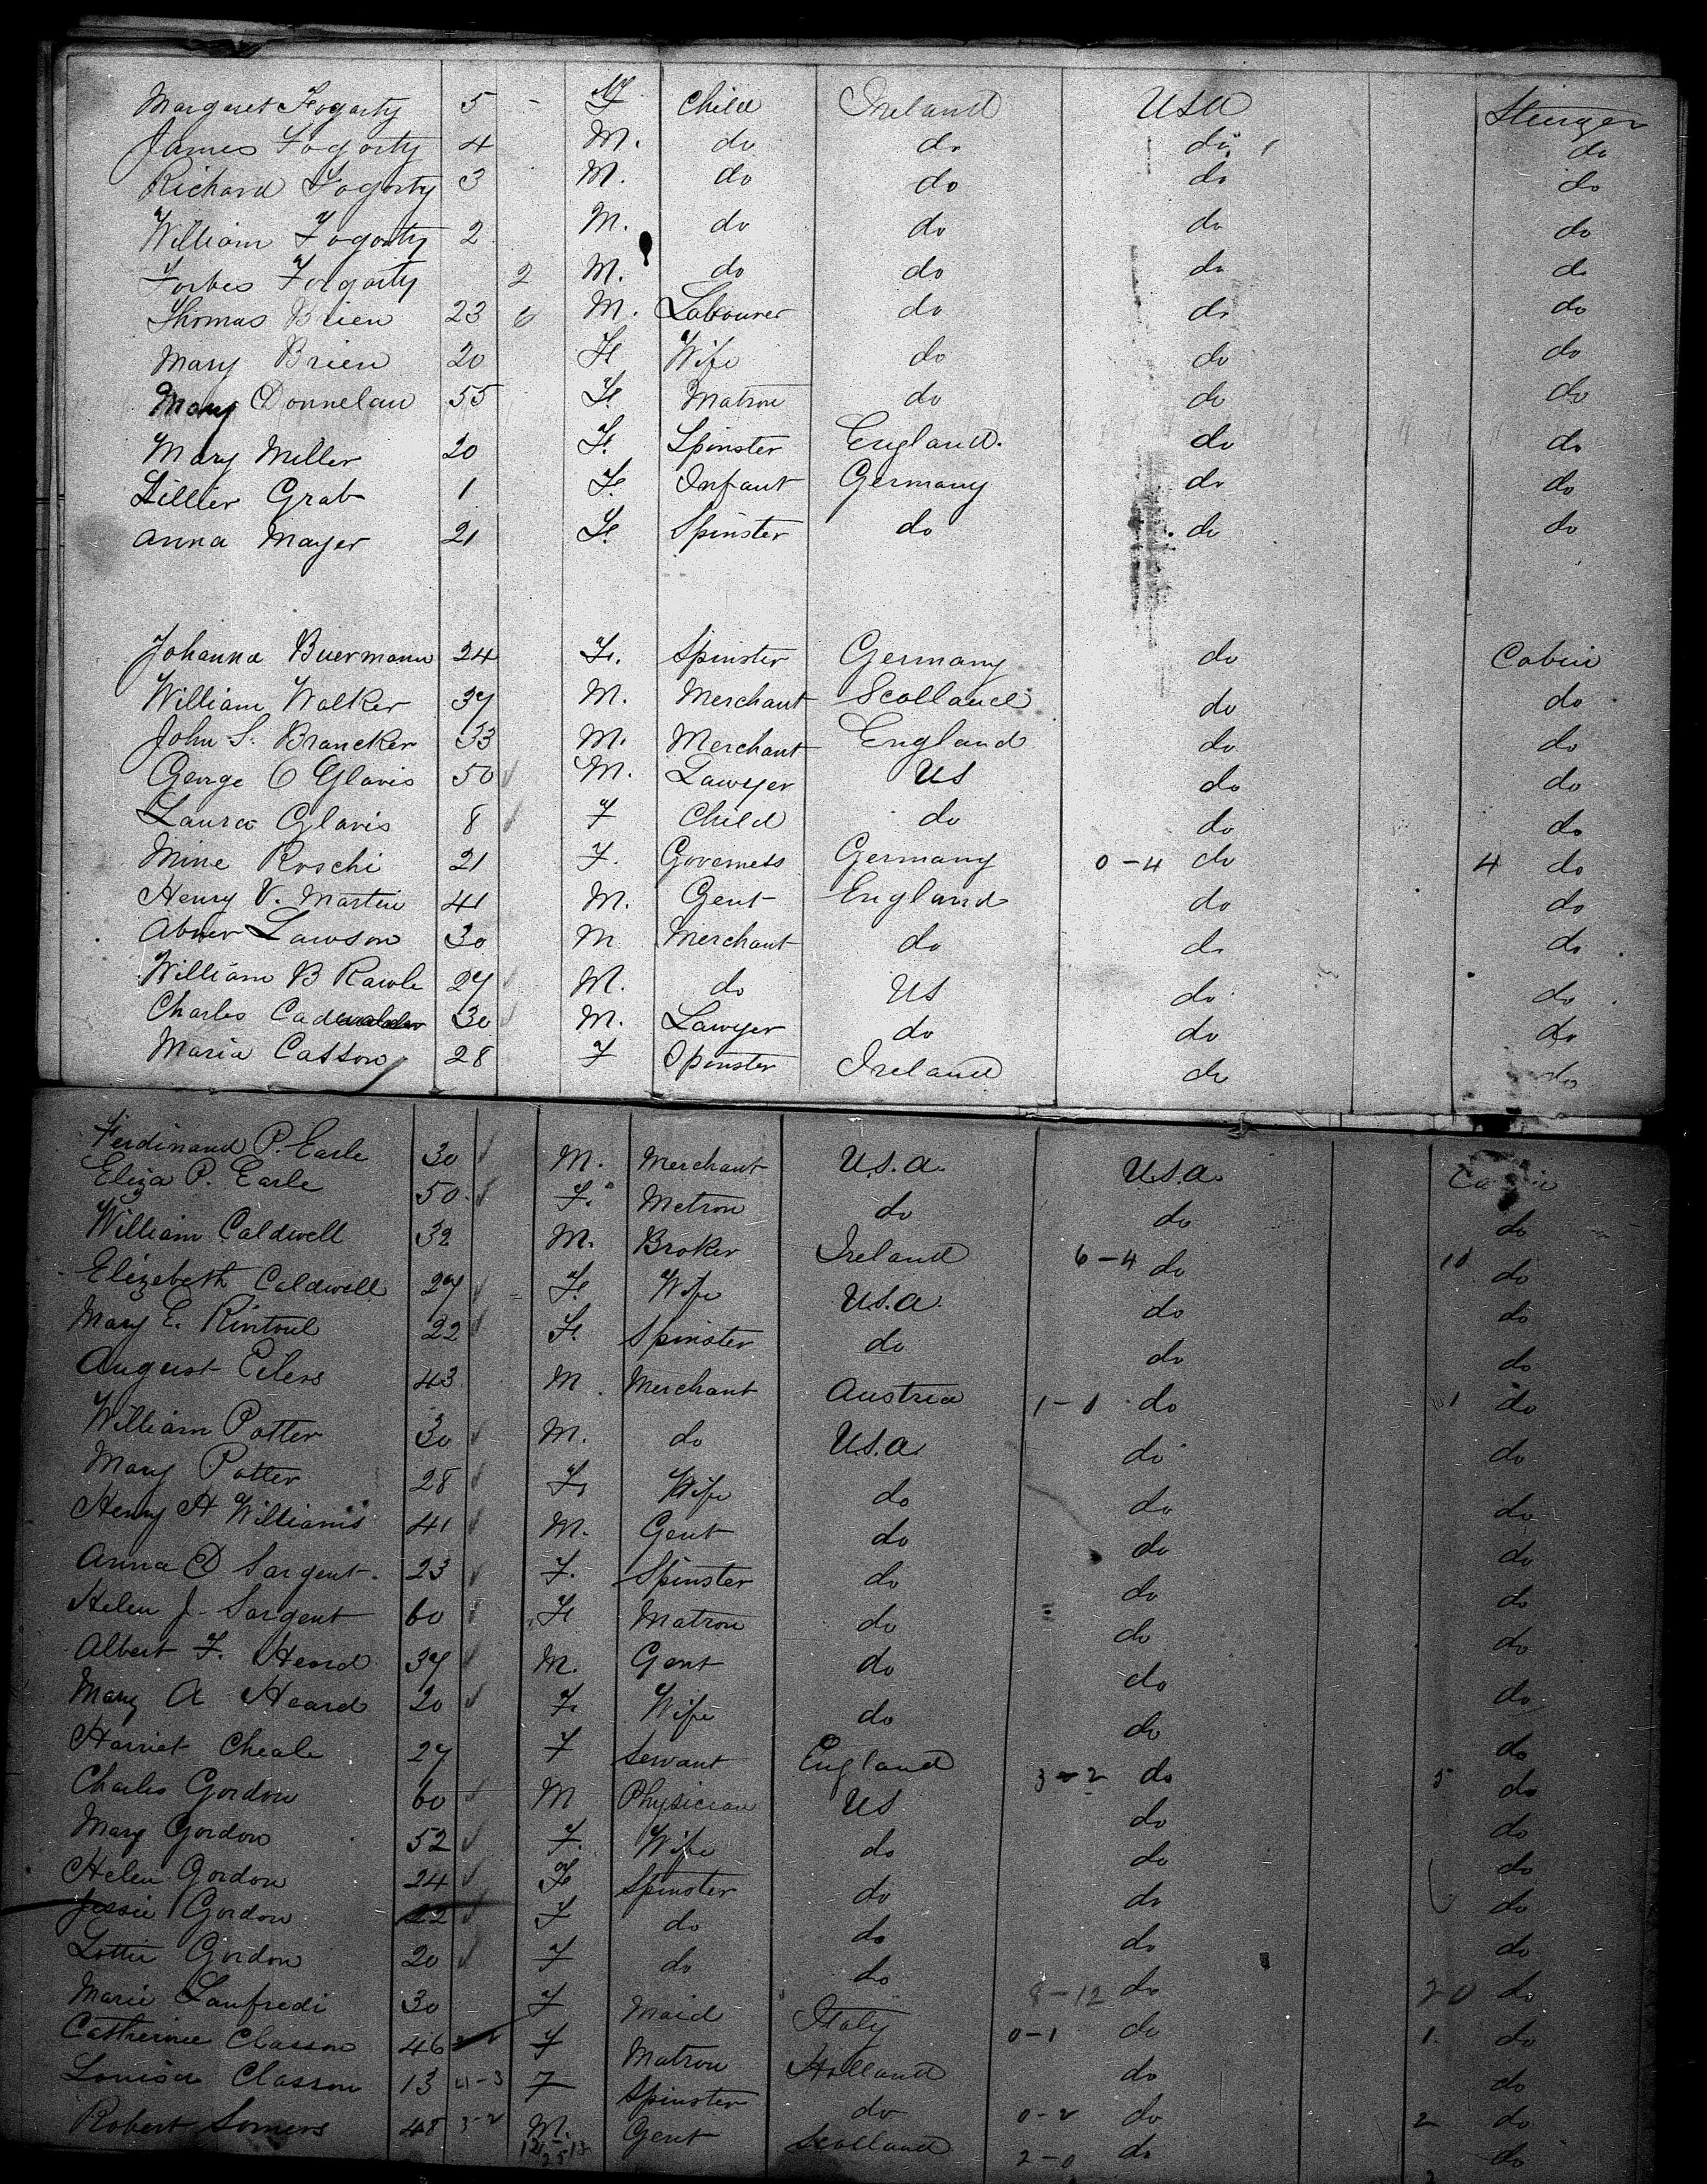 Margaret Fogarty 5 - F Child Ireland USA Steerage
James Fogarty 4 M. do do do do
Richard Fogarty 3 M. do do do do
William Fogarty 2 M. do do do do
Forbes Fogarty 2 M. do do do do
Thomas Brien 23 M. Labourer do do do
Mary Brien 20 F Wife do do do
Mary Donnelan 55 F. Matron do do do
Mary Miller 20 F. Spinster England. do do
Lillier Grab 1 F. Infant Germany do do
Anna Mayer 21 F. Spinster do do do
Johanna Buermann 24 F. Spinster Germany do Cabin
William Walker 37 M. Merchant Scotland do do
John S. Brancker 33 M. Merchant England do do
George O Glavis 50 M. Lawyer US do do
Laura Glavis 8 F Child do do do
Mine Roschi 21 F. Governess Germany 0-4 do 4 do
Henry V. Martin 41 M. Gent England do do
Abner Lawson 30 M Merchant do do do
William B Rawle 27 M. do US do do
Charles Cadwalader 30 M. Lawyer do do do
Maria Casson 28 F Spinster Ireland do do
Ferdinand P. Earle 30 M. Merchant U.S.A. U.S.A. Cabin
Eliza P. Earle 50 F. Metron do do do
William Caldwell 32 M. Broker Ireland 6-4 do 10 do
Elizebeth Caldwell 27 F. Wife U.S.A. do do
Mary E. Rintoul 22 F. Spinster do do do
August Eilers 43 M Merchant Austria 1-0 do 1 do
William Potter 30 M. do U.S.A. do do
Mary Potter 28 F. Wife do do do
Henry H Williams 41 M. Gent do do do
Anna D Sargent. 23 F. Spinster do do do
Helen J. Sargent 60 F Matron do do do
Albert F. Heard 37 M. Gent do do do
Mary A Heard 20 F. Wife do do do
Harriet Cheale 27 F Servant England 3-2 do 5 do
Charles Gordon 60 M Physician US do do
Mary Gordon 52 F. Wife do do do
Helen Gordon 24 F Spinster do do do
Jessie Gordon 22 F do do do do
Lottie Gordon 20 F do do 8-12 do 20 do
Marie Lanfredi 30 F Maid Italy 0-1 do 1 do
Catherine Classon 46 F Matron Holland do do
Louisa Classon 13 11-3 F Spinster do 0-2 do 2 do
Robert Somers 48 3-2 M. Gent Scotland 2-0 do do